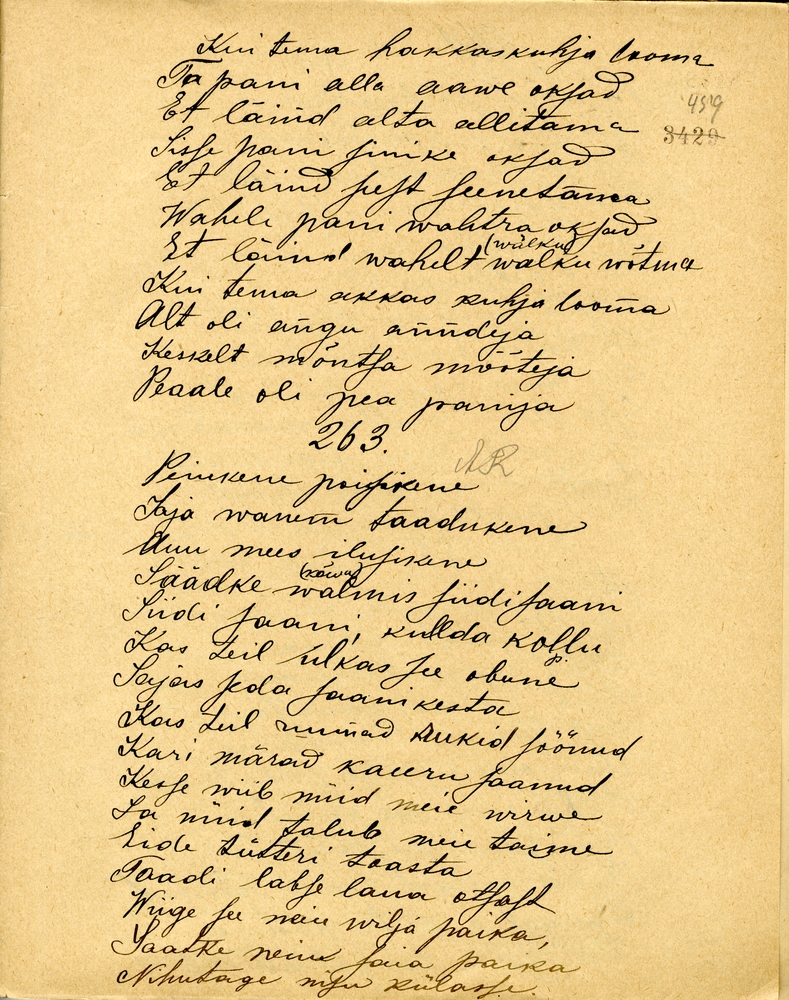 Kui tema hakkas kuhja looma
Ta pani alla aawe oksad
459
Et läind alta allitama
3429
Sisse pani sinike oksad
Et läind sest seenetama
Wahele pani wahtra oksad
(wälku)
Et läind wahelt walku wõtma
Kui tema akkas kuhja looma
Alt oli angu anndeja
Keskelt mõntsa mõõteja
Peaale oli pea panija
263.
AR
Peiukene poisikene
Saja wanem taadukene
Auu mees ilusikene
(käwa)
Säädke walmis siidi saani
Siidi saani, kullda kollu
Kas teil ulkas see obune
Sajas seda saanikesta
Kas teil runnad rukid söönud
Kari märad kaeru saanud
Kesse wiib nüid meie wirwe
Ja nüid talub meie taime
Eide tütteri toasta
Taadi labse laua otsast
Wiige see neiu wilja paika,
Saatke neiu saia paika
Nihutage nisu külasse.